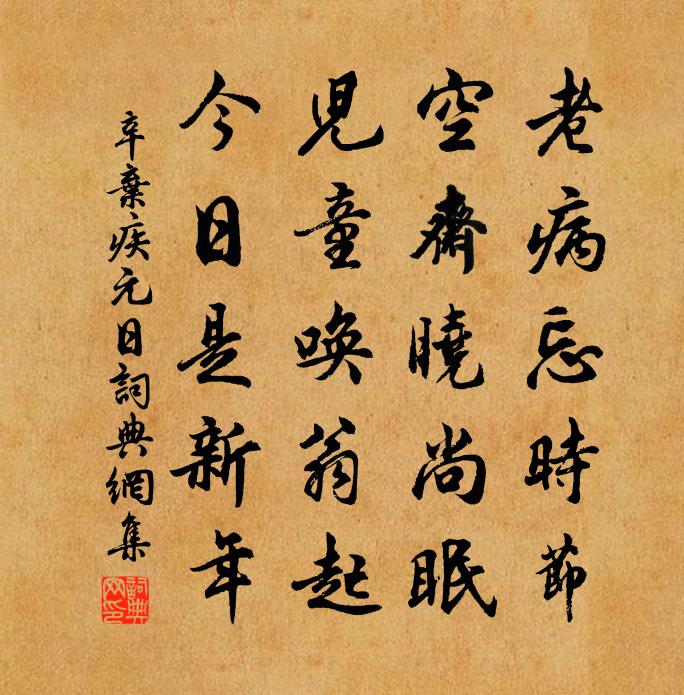 老病忘時節
空齋曉尚眠
兒童喚翁起
今日是新年
辛棄疾元日詞典網集
詞典網印